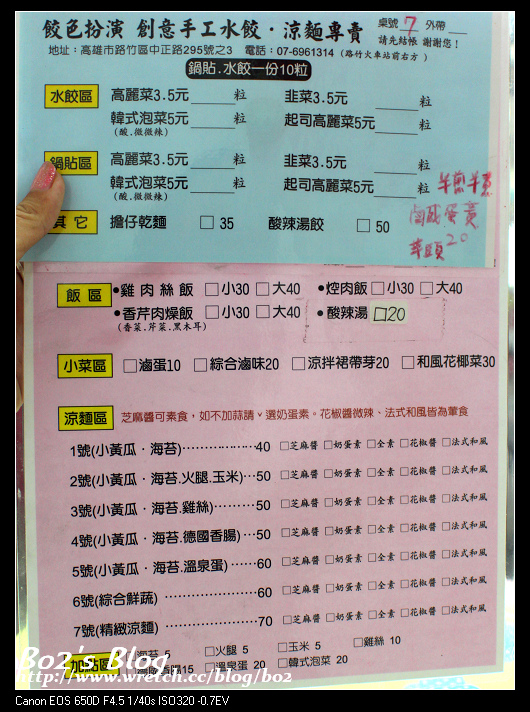 餃色扮演 創意手工水餃·涼麵專賣 桌號 7 外帶
請先結帳 謝謝您!
地址:高雄市路竹區中正路295號之3 電話:07-6961314 (路竹火車站前右方)
鍋貼.水餃一份10粒
水餃區 高麗菜3.5元 粒 韭菜3.5元 粒
韓式泡菜5元 粒 起司高麗菜5元 粒
(酸.微微辣)
鍋貼區 高麗菜3.5元 粒 韭菜3.5元 粒
韓式泡菜5元 粒 起司高麗菜5元 粒
(酸.微微辣)
其它 擔仔乾麵 □ 35 酸辣湯餃 □ 50
20
飯區 •雞肉絲飯 □小30 □大40 •焢肉飯 □小30 □大40
•香芹肉燥飯 □小30 □大40 •酸辣湯 □20
(香菜.芹菜.黑木耳)
小菜區 □滷蛋10 □綜合滷味20 □涼拌裙帶芽20 □和風花椰菜30
涼麵區 芝麻醬可素食,如不加蒜請ˇ選奶蛋素。花椒醬微辣、法式和風皆為葷食
1號(小黃瓜·海苔)………………40 □芝麻醬 □奶蛋素 □全素 □花椒醬 □法式和風
2號(小黃瓜·海苔.火腿.玉米)…50 □芝麻醬 □奶蛋素 □全素 □花椒醬 □法式和風
3號(小黃瓜·海苔.雞絲)………50 □芝麻醬 □奶蛋素 □全素 □花椒醬 □法式和風
4號(小黃瓜·海苔.德國香腸)…50 □芝麻醬 □奶蛋素 □全素 □花椒醬 □法式和風
5號(小黃瓜·海苔.溫泉蛋)……60 □芝麻醬 □奶蛋素 □全素 □花椒醬 □法式和風
6號(綜合鮮蔬)…………………60 □芝麻醬 □奶蛋素 □全素 □花椒醬 □法式和風
7號(精緻涼麵)…………………70 □芝麻醬 □奶蛋素 □全素 □花椒醬 □法式和風
加點區 海苔 5 □火腿 5 □玉米 5 □雞絲 10
15 □溫泉蛋 20 □韓式泡菜 20
Bo2's Blog
http://www.wretch.cc/blog/bo2
Canon EOS 650D F4.5 1/40s ISO320 -0.7EV